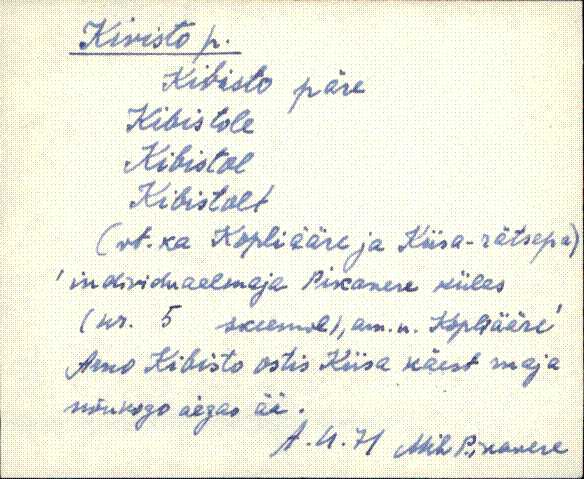 Kivisto p.
Kibisto päre
Kibistole
Kibistol
Kibistolt
(vt. ka Kopliääre ja Kiisa-rätsepa)
'individuaelmaja Pikavere külas
(nr. 5 skeemol), am. n. Kopliääre'
Arno Kibisto ostis Kiisa käest maja
nõukogo aegas ää.
A. U. 71 Mih Pikavere